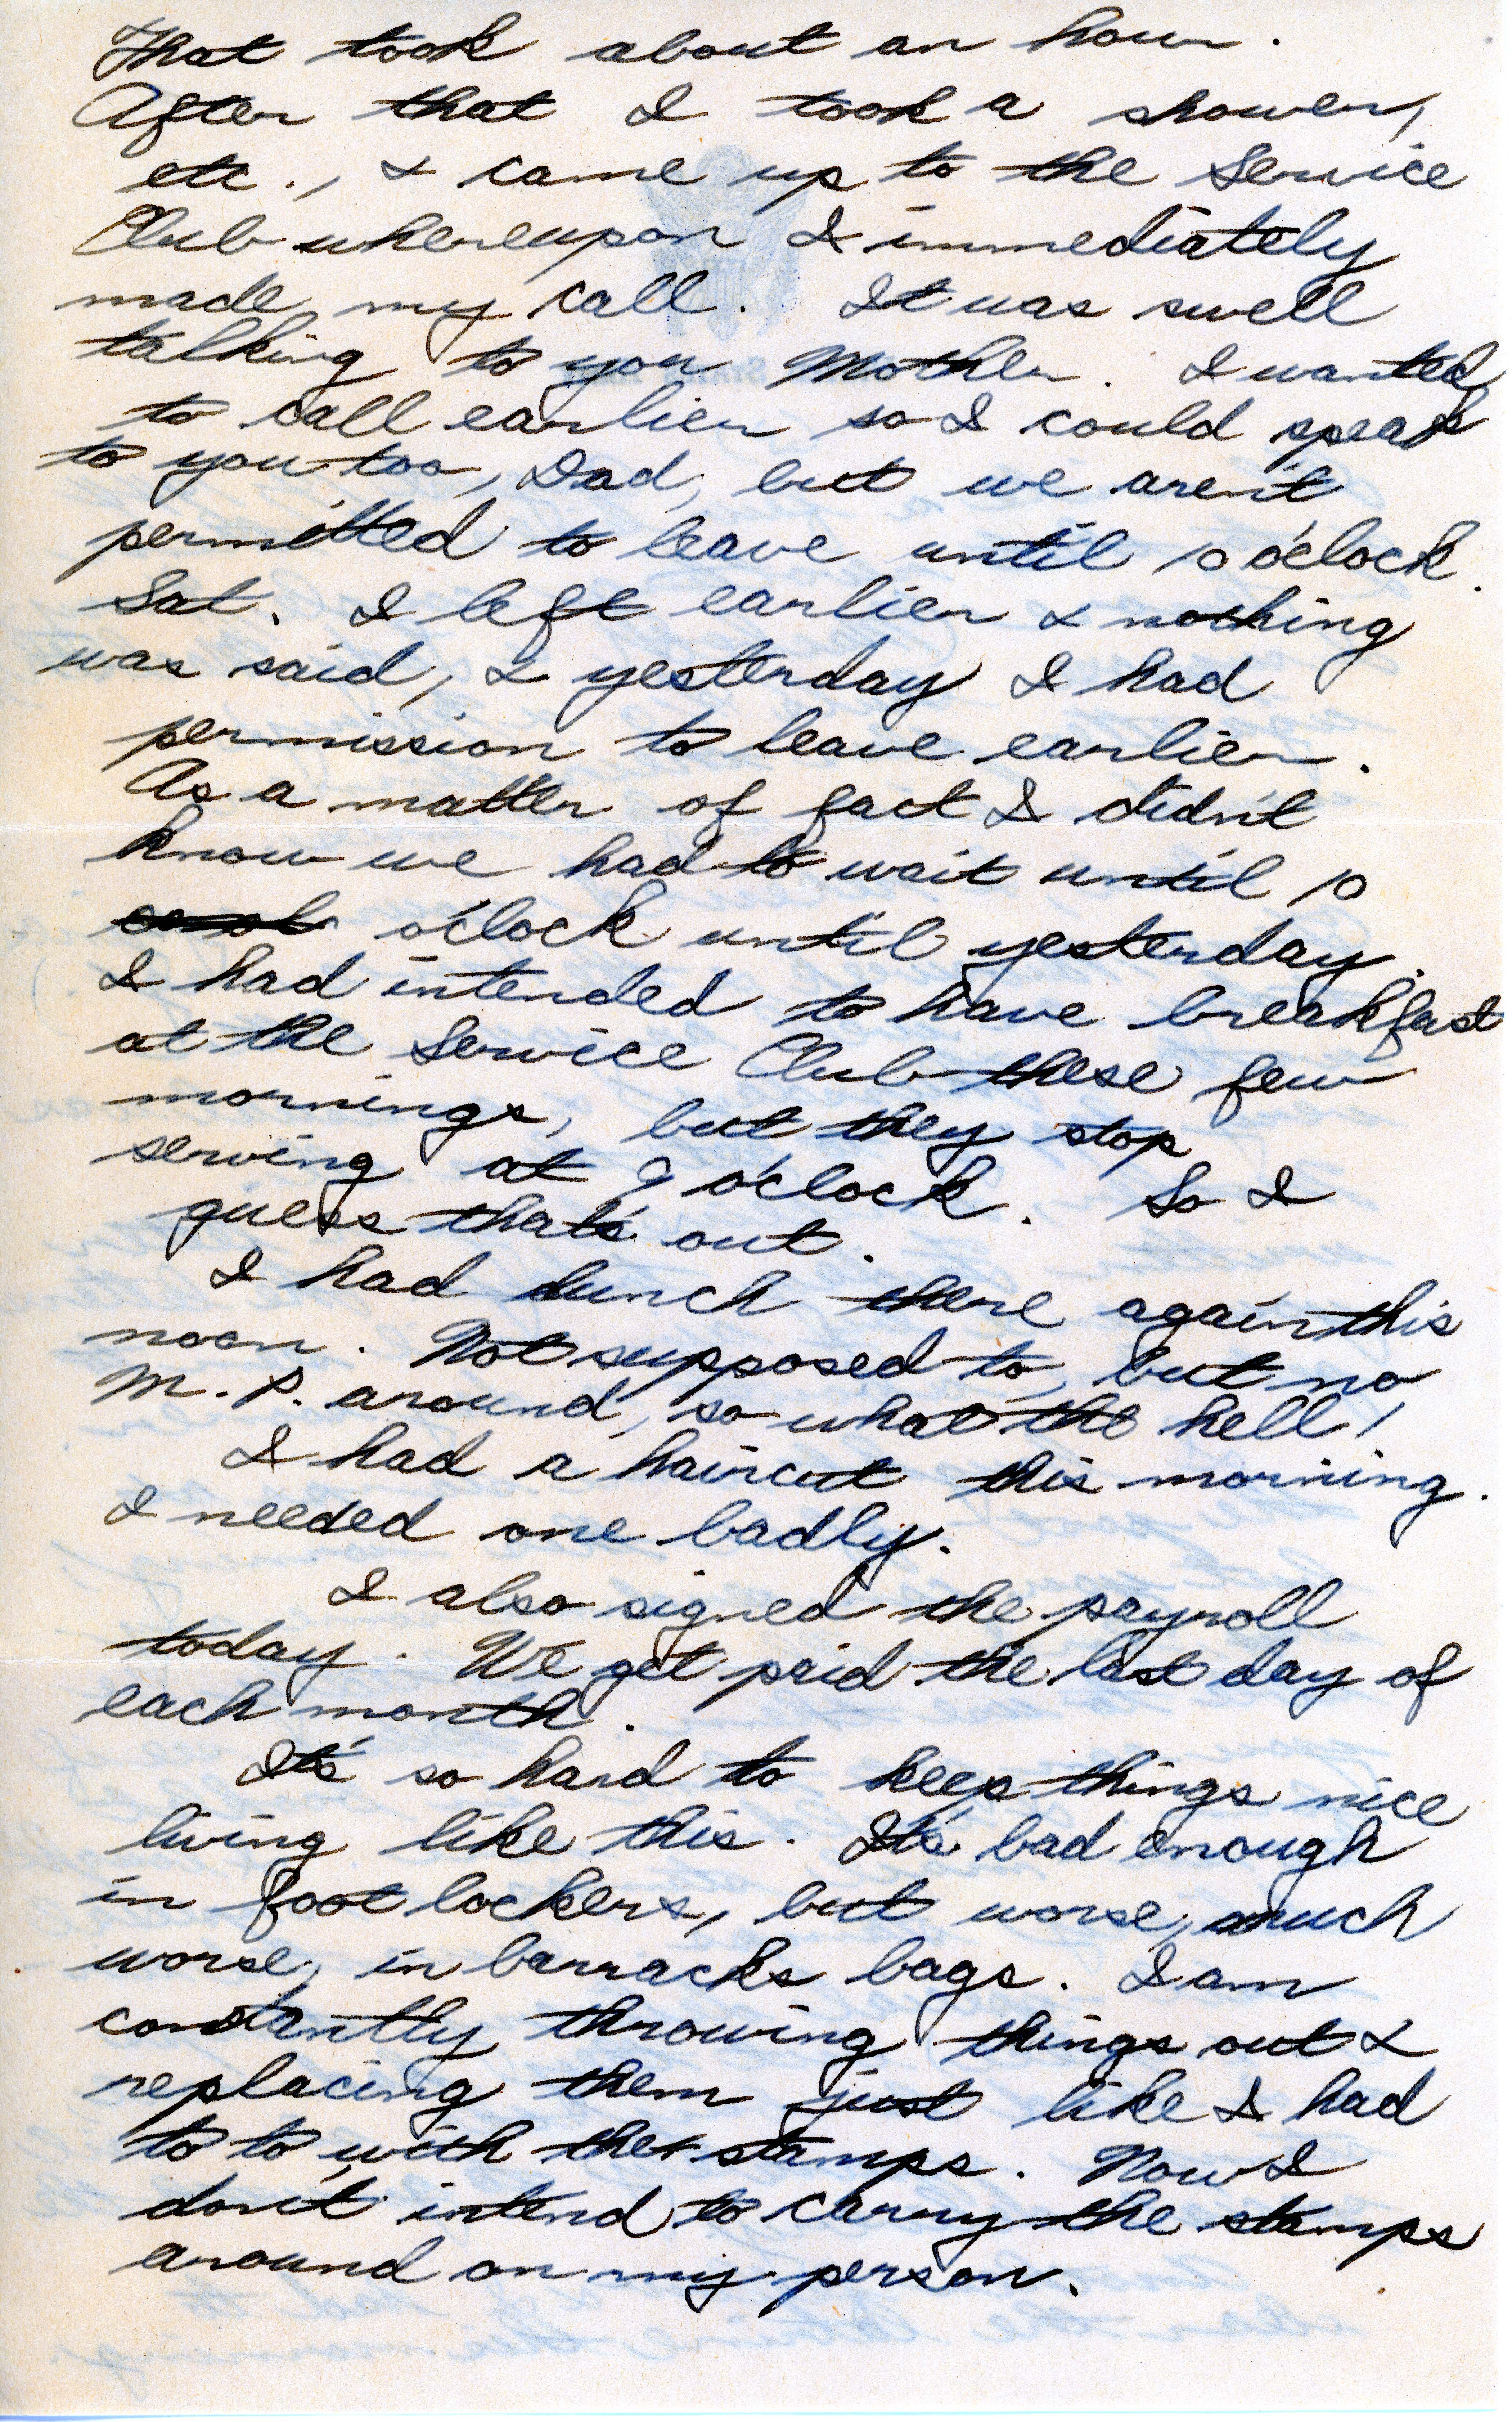 That took about an hour.
After that I took a shower,
etc., & came up to the Service
Club whereupon I immediately
made my call. It was swell
talking to you Mother. I wanted
to call earlier so I could speak
to you too, Dad, but we aren't
permitted to leave until 10 o'clock.
Sat. I left earlier & nothing
was said, & yesterday I had
permission to leave earlier.
As a matter of fact I didn't
know we had to wait until 10
o'clock until yesterday.
I had intended to have breakfast
at the Service Club these few
mornings, but they stop
serving at 9 o'clock. So I
guess that's out.
I had lunch there again this
noon. Not supposed to, but no
M.P. around, so what the hell!
I had a haircut this morning.
I needed one badly.
I also signed the payroll
today. We get paid the last day of
each month.
It's so hard to keep things nice
living like this. It's bad enough
in foot lockers, but worse, much
worse, in barracks bags. I am
constantly throwing things out &
replacing them just like I had
to to with the stamps. Now I
don't intend to carry the stamps
around on my person.